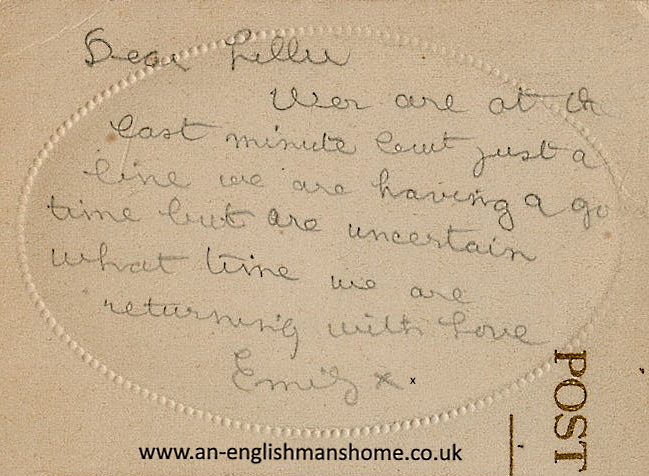 Dear Lillie
Wer are at th
last minute but just a
line we are having a go
time but are uncertain
what time we are
returning with Love
Emily x x
POST
www.an-englishmanshome.co.uk